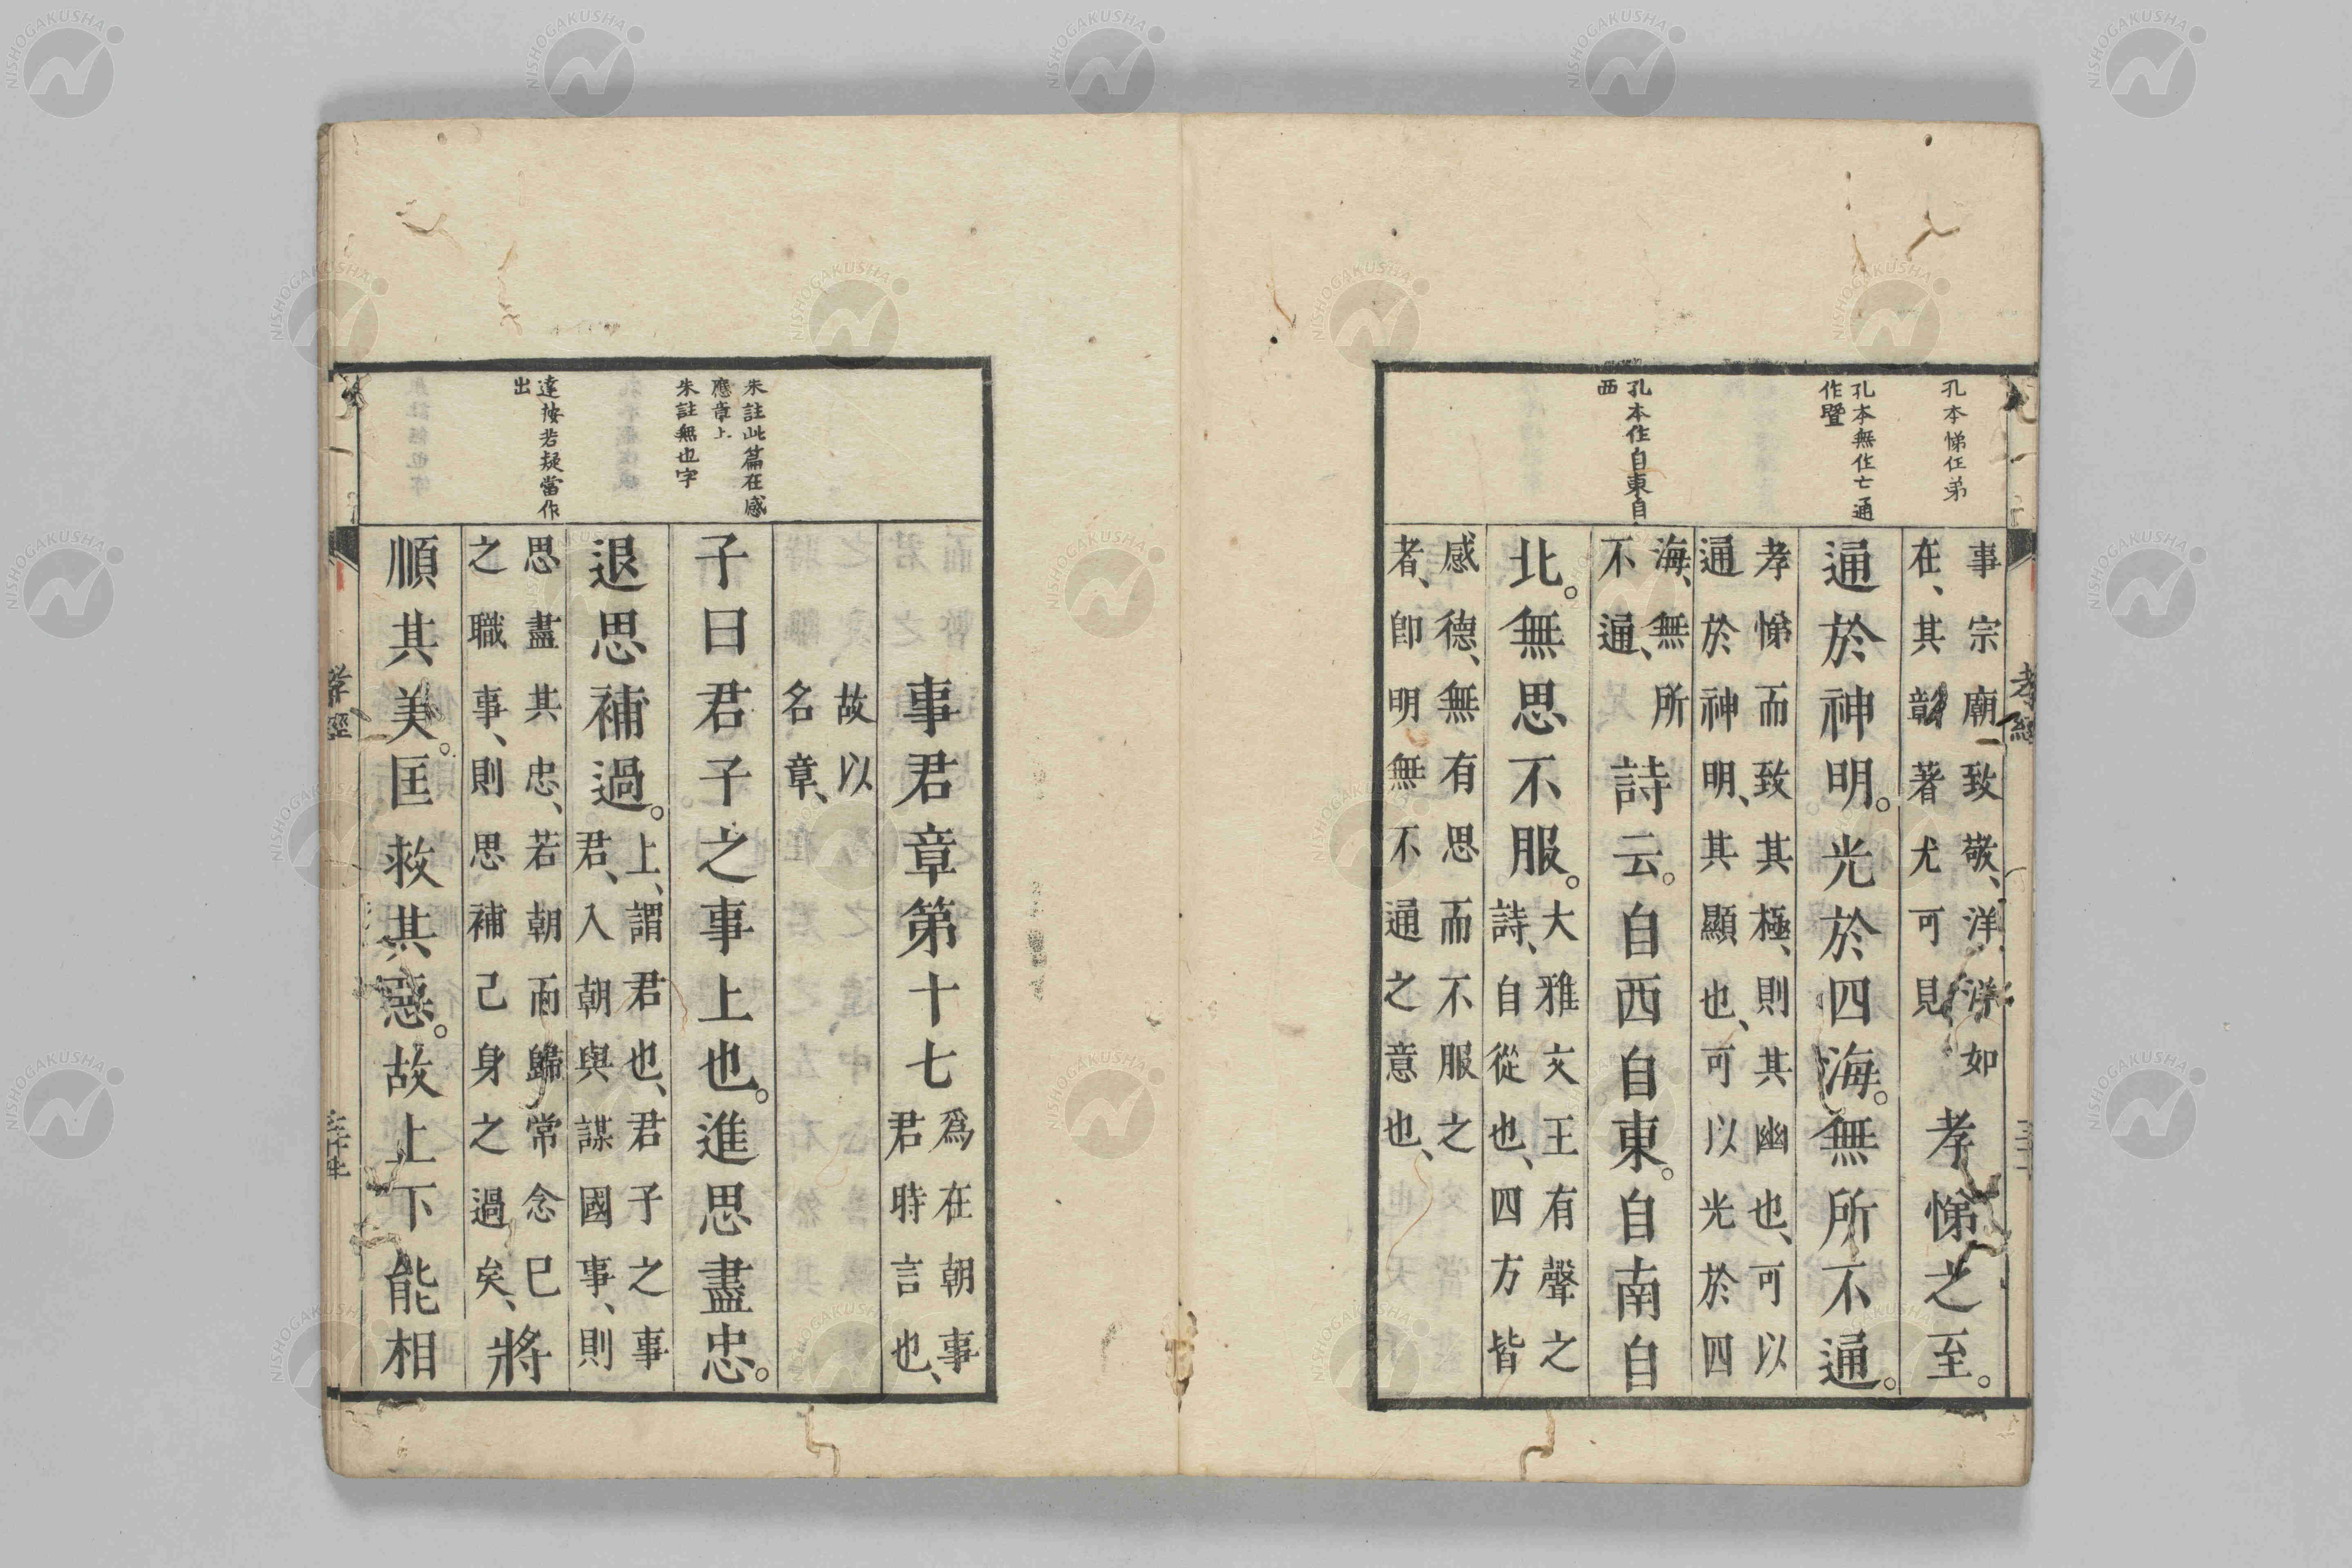 孔本悌作弟
孔本無作亡通
作曁
孔本作自東自
西
事宗廟致敬、洋洋如
在、其彰著尤可見、
孝悌之至。
通於神明。光於四海。無所不通。
孝悌而致其極、則其幽也、可以
通於神明、其顯也、可以光於四
海、無所
不通、
詩云。自西自東。自南自
北。無思不服。
大雅文王有聲之
詩、自從也、四方皆
感德、無有思而不服之
者、卽明無不通之意也、
孝經
朱註此篇在感
應章上
朱註無也字
達按若疑當作
出
事君章第十七
爲在朝事
君時言也、
故以
名章、
子曰君子之事上也。進思盡忠。
退思補過。
上、謂君也、君子之事
君、入朝與謀國事、則
思盡其忠、若朝而歸常念已
之職事、則思補己身之過矣、
將
順其美。匡救其惡。故上下能相
孝經